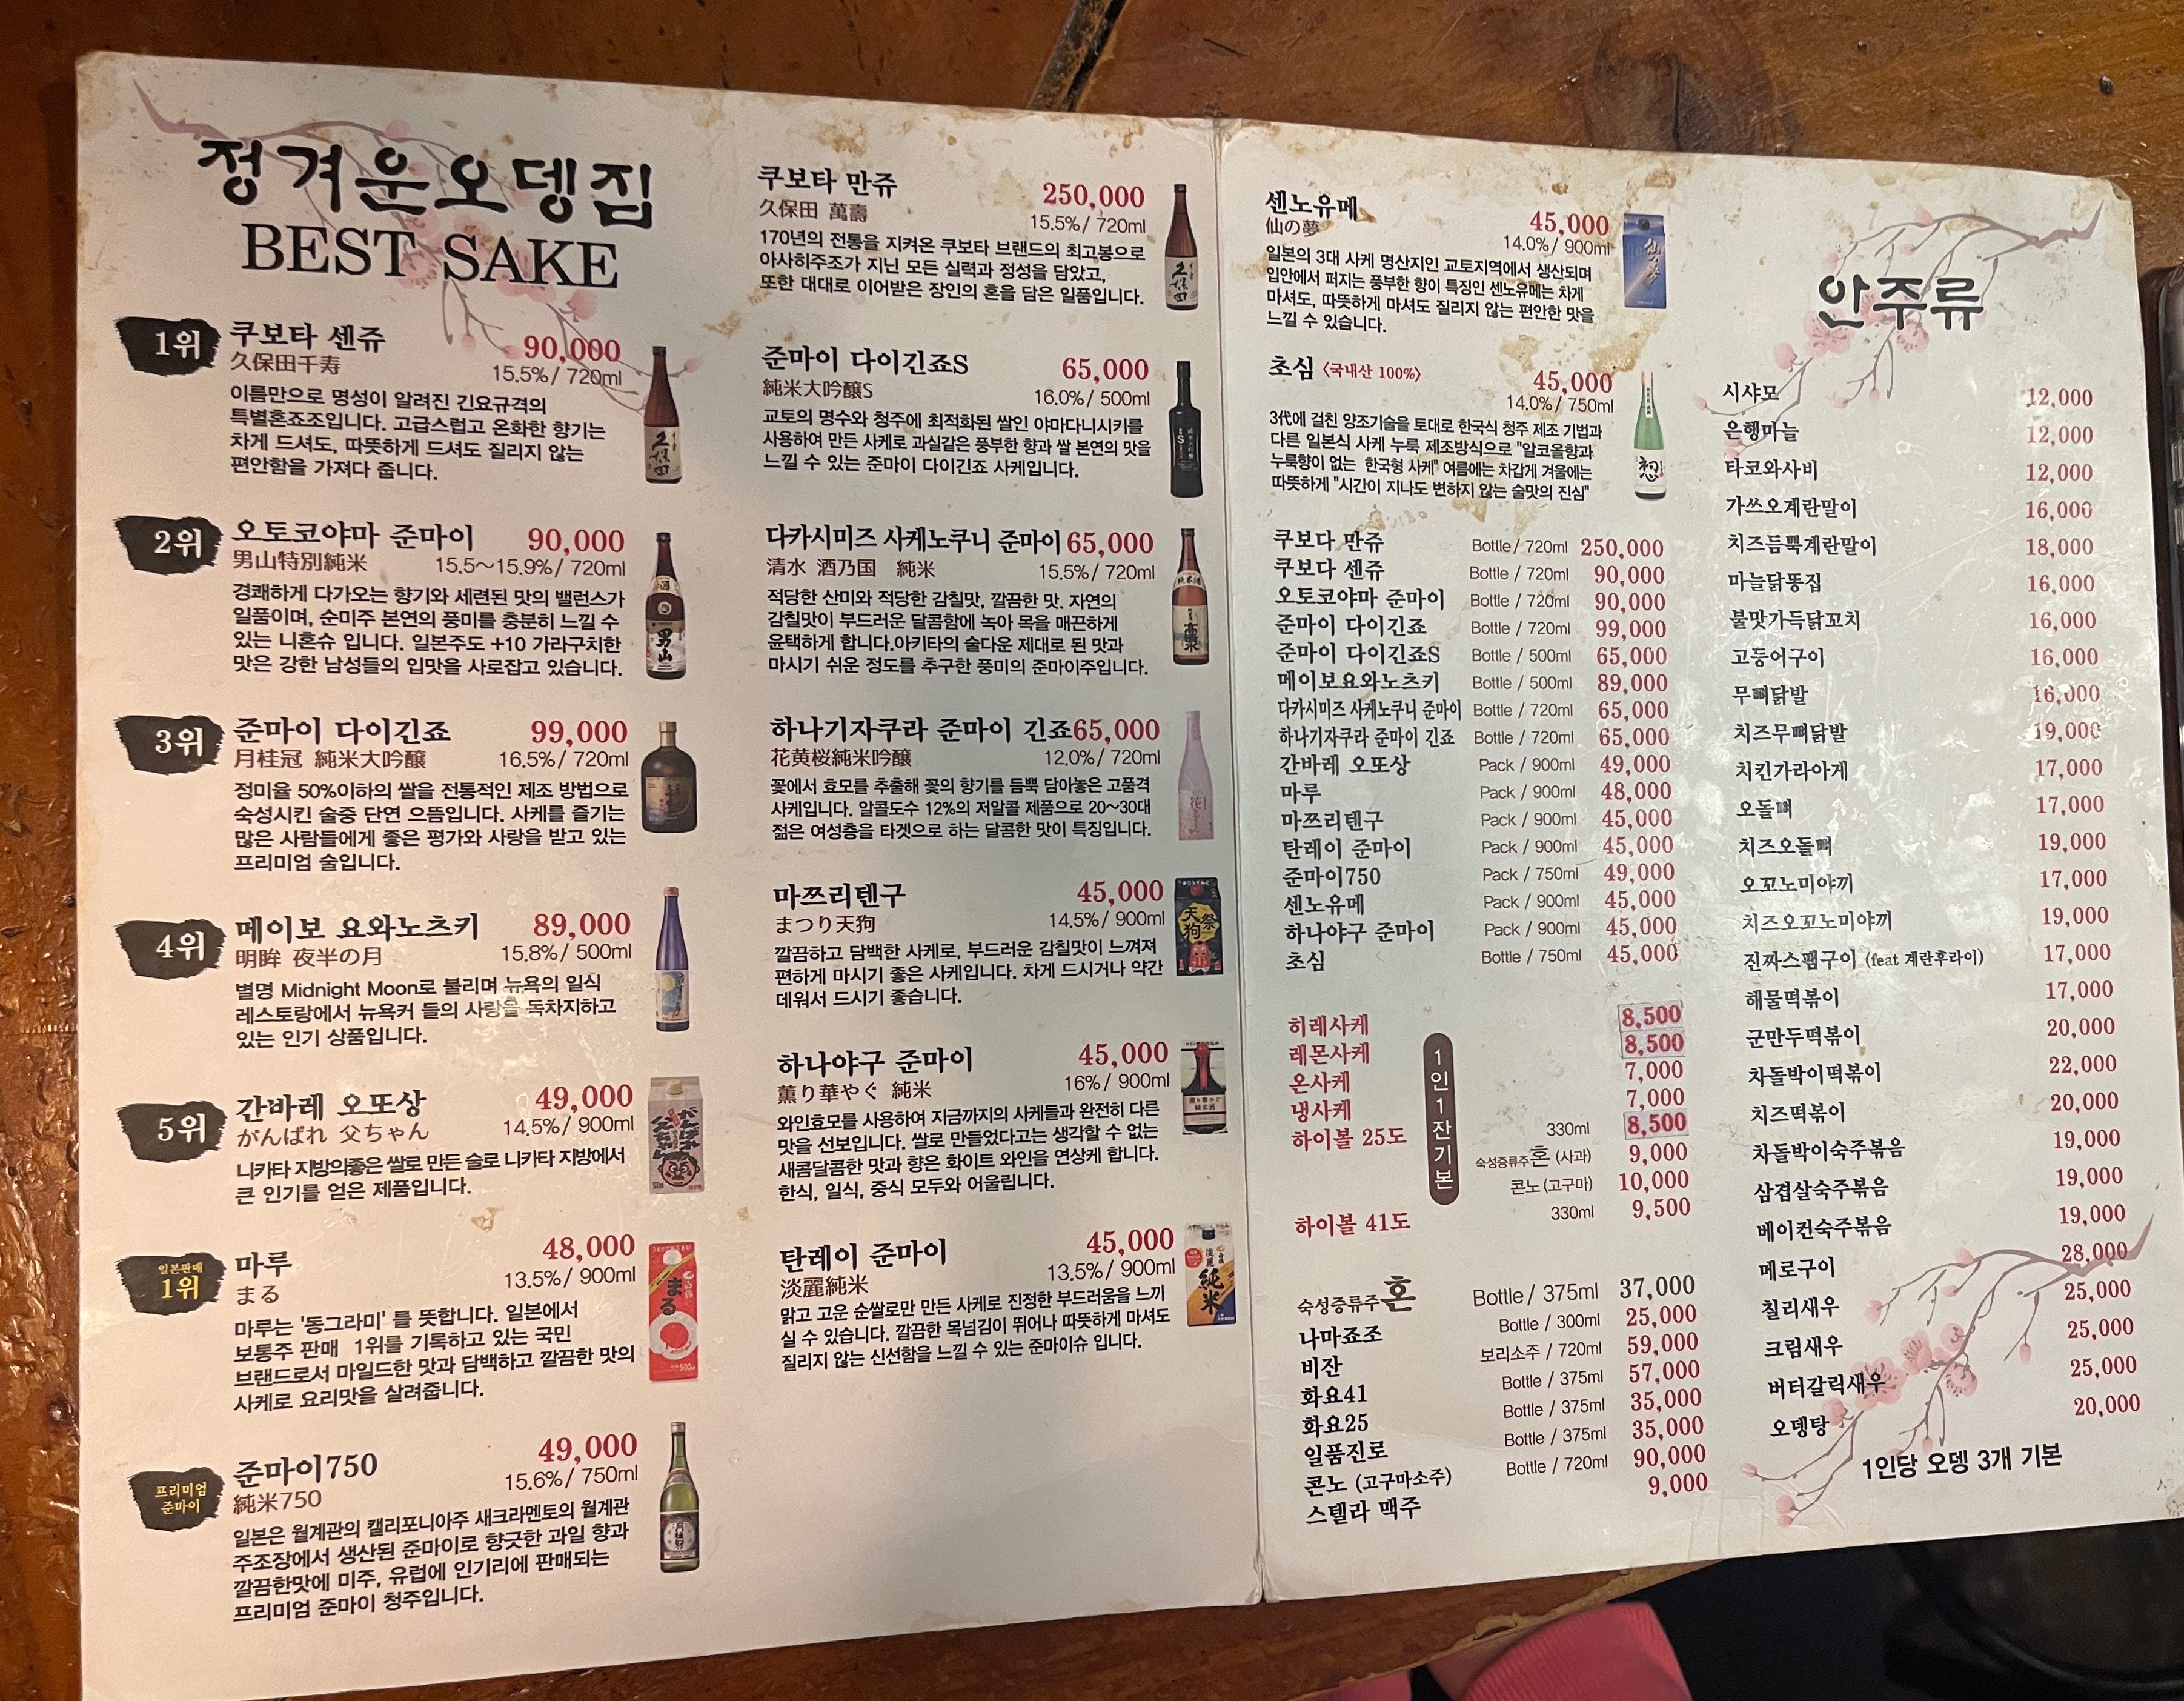 정겨운오뎅집
BEST SAKE
1위
쿠보타 센쥬
90,000
久保田千寿
15.5%/ 720ml
이름만으로 명성이 알려진 긴요규격의
특별혼죠조입니다. 고급스럽고 온화한 향기는
차게 드셔도, 따뜻하게 드셔도 질리지 않는
편안함을 가져다 줍니다.
2위
오토코야마 준마이
90,000
男山特別純米
15.5~15.9%/ 720ml
경쾌하게 다가오는 향기와 세련된 맛의 밸런스가
일품이며, 순미주 본연의 풍미를 충분히 느낄 수
있는 니혼슈 입니다. 일본주도 +10 가라구치한
맛은 강한 남성들의 입맛을 사로잡고 있습니다.
3위
준마이 다이긴죠
99,000
月桂冠 純米大吟醸
16.5%/ 720ml
정미율 50%이하의 쌀을 전통적인 제조 방법으로
숙성시킨 술중 단연 으뜸입니다. 사케를 즐기는
많은 사람들에게 좋은 평가와 사랑을 받고 있는
프리미엄 술입니다.
4위
메이보 요와노츠키
89,000
明眸 夜半の月
15.8%/ 500ml
별명 Midnight Moon로 불리며 뉴욕의 일식
레스토랑에서 뉴욕커 들의 사랑을 독차지하고
있는 인기 상품입니다.
5위
간바레 오또상
49,000
がんばれ 父ちゃん
14.5%/ 900ml
니카타 지방의좋은 쌀로 만든 술로 니카타 지방에서
큰 인기를 얻은 제품입니다.
일본판매
1위
마루
48,000
まる
13.5%/ 900ml
마루는 '동그라미' 를 뜻합니다. 일본에서
보통주 판매 1위를 기록하고 있는 국민
브랜드로서 마일드한 맛과 담백하고 깔끔한 맛의
사케로 요리맛을 살려줍니다.
프리미엄
준마이
준마이750
49,000
純米750
15.6%/ 750ml
일본은 월계관의 캘리포니아주 새크라멘토의 월계관
주조장에서 생산된 준마이로 향긋한 과일 향과
깔끔한맛에 미주, 유럽에 인기리에 판매되는
프리미엄 준마이 청주입니다.
쿠보타 만쥬
250,000
久保田 萬壽
15.5%/ 720ml
170년의 전통을 지켜온 쿠보타 브랜드의 최고봉으로
아사히주조가 지닌 모든 실력과 정성을 담았고,
또한 대대로 이어받은 장인의 혼을 담은 일품입니다.
준마이 다이긴죠S
65,000
純米大吟醸S
16.0%/ 500ml
교토의 명수와 청주에 최적화된 쌀인 야마다니시키를
사용하여 만든 사케로 과실같은 풍부한 향과 쌀 본연의 맛을
느낄 수 있는 준마이 다이긴죠 사케입니다.
다카시미즈 사케노쿠니 준마이 65,000
清水 酒乃国 純米
15.5%/ 720ml
적당한 산미와 적당한 감칠맛, 깔끔한 맛. 자연의
감칠맛이 부드러운 달콤함에 녹아 목을 매끈하게
윤택하게 합니다.아키타의 술다운 제대로 된 맛과
마시기 쉬운 정도를 추구한 풍미의 준마이주입니다.
하나기자쿠라 준마이 긴죠65,000
花黄桜純米吟醸
12.0%/ 720ml
꽃에서 효모를 추출해 꽃의 향기를 듬뿍 담아놓은 고품격
사케입니다. 알콜도수 12%의 저알콜 제품으로 20~30대
젊은 여성층을 타겟으로 하는 달콤한 맛이 특징입니다.
마쯔리텐구
45,000
まつり天狗
14.5%/ 900ml
깔끔하고 담백한 사케로, 부드러운 감칠맛이 느껴져
편하게 마시기 좋은 사케입니다. 차게 드시거나 약간
데워서 드시기 좋습니다.
하나야구 준마이
45,000
薫り華やぐ 純米
16%/ 900ml
와인효모를 사용하여 지금까지의 사케들과 완전히 다른
맛을 선보입니다. 쌀로 만들었다고는 생각할 수 없는
새콤달콤한 맛과 향은 화이트 와인을 연상케 합니다.
한식, 일식, 중식 모두와 어울립니다.
탄레이 준마이
45,000
淡麗純米
13.5%/ 900ml
맑고 고운 순쌀로만 만든 사케로 진정한 부드러움을 느끼
실 수 있습니다. 깔끔한 목넘김이 뛰어나 따뜻하게 마셔도
질리지 않는 신선함을 느낄 수 있는 준마이슈 입니다.
센노유메
45,000
仙の夢
14.0%/ 900ml
일본의 3대 사케 명산지인 교토지역에서 생산되며
입안에서 퍼지는 풍부한 향이 특징인 센노유메는 차게
마셔도, 따뜻하게 마셔도 질리지 않는 편안한 맛을
느낄 수 있습니다.
초심 <국내산 100%>
45,000
14.0%/ 750ml
3代에 걸친 양조기술을 토대로 한국식 청주 제조 기법과
다른 일본식 사케 누룩 제조방식으로 "알코올향과
누룩향이 없는 한국형 사케" 여름에는 차갑게 겨울에는
따뜻하게 "시간이 지나도 변하지 않는 술맛의 진심"
쿠보다 만쥬 Bottle / 720ml 250,000
쿠보다 센쥬 Bottle / 720ml 90,000
오토코야마 준마이 Bottle / 720ml 90,000
준마이 다이긴죠 Bottle / 720ml 99,000
준마이 다이긴죠S Bottle / 500ml 65,000
메이보요와노츠키 Bottle / 500ml 89,000
다카시미즈 사케노쿠니 준마이 Bottle / 720ml 65,000
하나기자쿠라 준마이 긴죠 Bottle / 720ml 65,000
간바레 오또상 Pack / 900ml 49,000
마루 Pack / 900ml 48,000
마쯔리텐구 Pack / 900ml 45,000
탄레이 준마이 Pack / 900ml 45,000
준마이750 Pack / 750ml 49,000
센노유메 Pack / 900ml 45,000
하나야구 준마이 Pack / 900ml 45,000
초심 Bottle / 750ml 45,000
히레사케 8,500
레몬사케 8,500
온사케 7,000
냉사케 7,000
하이볼 25도 330ml 8,500
숙성증류주혼 (사과) 9,000
콘노 (고구마) 10,000
하이볼 41도 330ml 9,500
1인1잔기본
숙성증류주혼 Bottle / 375ml 37,000
나마죠조 Bottle / 300ml 25,000
비잔 보리소주 / 720ml 59,000
화요41 Bottle / 375ml 57,000
화요25 Bottle / 375ml 35,000
일품진로 Bottle / 375ml 35,000
콘노 (고구마소주) Bottle / 720ml 90,000
스텔라 맥주 9,000
안주류
시샤모 12,000
은행마늘 12,000
타코와사비 12,000
가쓰오계란말이 16,000
치즈듬뿍계란말이 18,000
마늘닭똥집 16,000
불맛가득닭꼬치 16,000
고등어구이 16,000
무뼈닭발 16,000
치즈무뼈닭발 19,000
치킨가라아게 17,000
오돌뼈 17,000
치즈오돌뼈 19,000
오꼬노미야끼 17,000
치즈오꼬노미야끼 19,000
진짜스팸구이 (feat 계란후라이) 17,000
해물떡볶이 17,000
군만두떡볶이 20,000
차돌박이떡볶이 22,000
치즈떡볶이 20,000
차돌박이숙주볶음 19,000
삼겹살숙주볶음 19,000
베이컨숙주볶음 19,000
메로구이 28,000
칠리새우 25,000
크림새우 25,000
버터갈릭새우 25,000
오뎅탕 20,000
1인당 오뎅 3개 기본